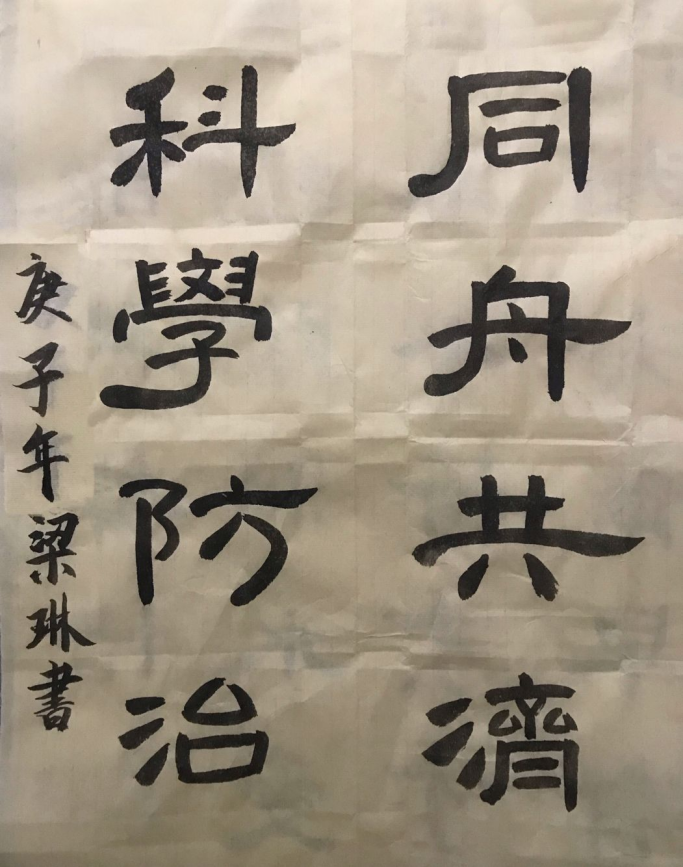 同舟共濟
科學防治
庚子年梁琳書